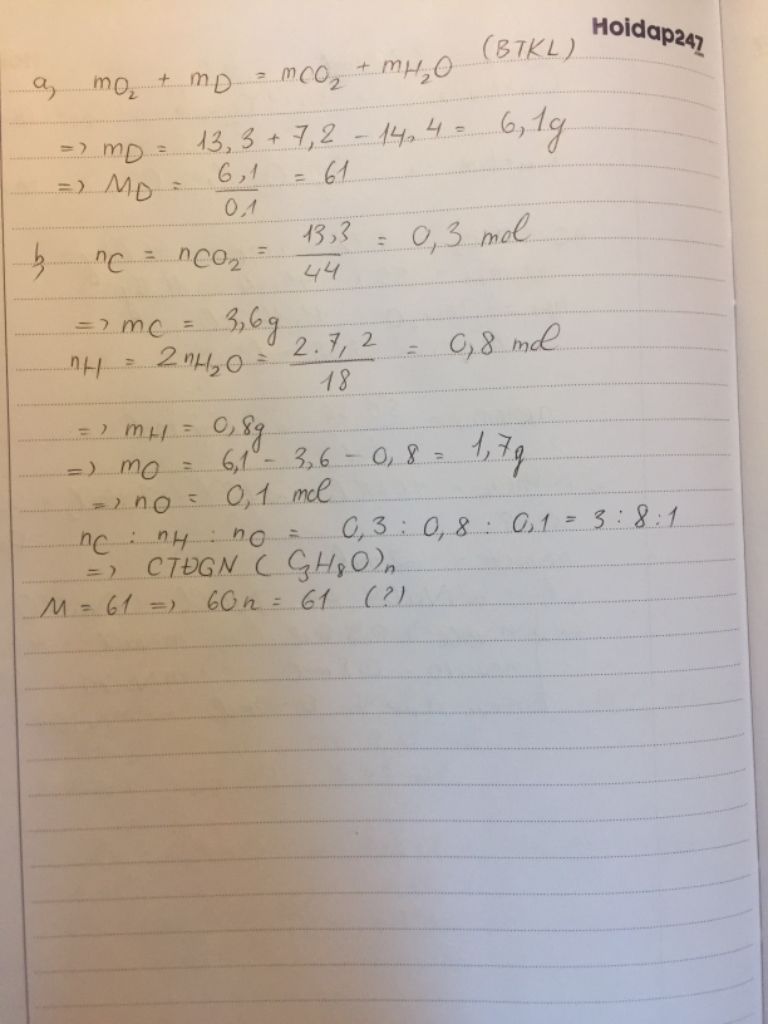 Hoidap247
a, mO₂ + mD = mCO₂ + mH₂O (BTKL)
=> mD = 13,3 + 7,2 - 14,4 = 6,1g
=> MD = 6,1/0,1 = 61
b, nC = nCO₂ = 13,3/44 = 0,3 mol
=> mC = 3,6g
nH = 2nH₂O = 2.7,2/18 = 0,8 mol
=> mH = 0,8g
=> mO = 6,1 - 3,6 - 0,8 = 1,7g
=> nO = 0,1 mol
nC : nH : nO = 0,3 : 0,8 : 0,1 = 3 : 8 : 1
=> CTĐGN (C₃H₈O)n
M = 61 => 60n = 61 (?)